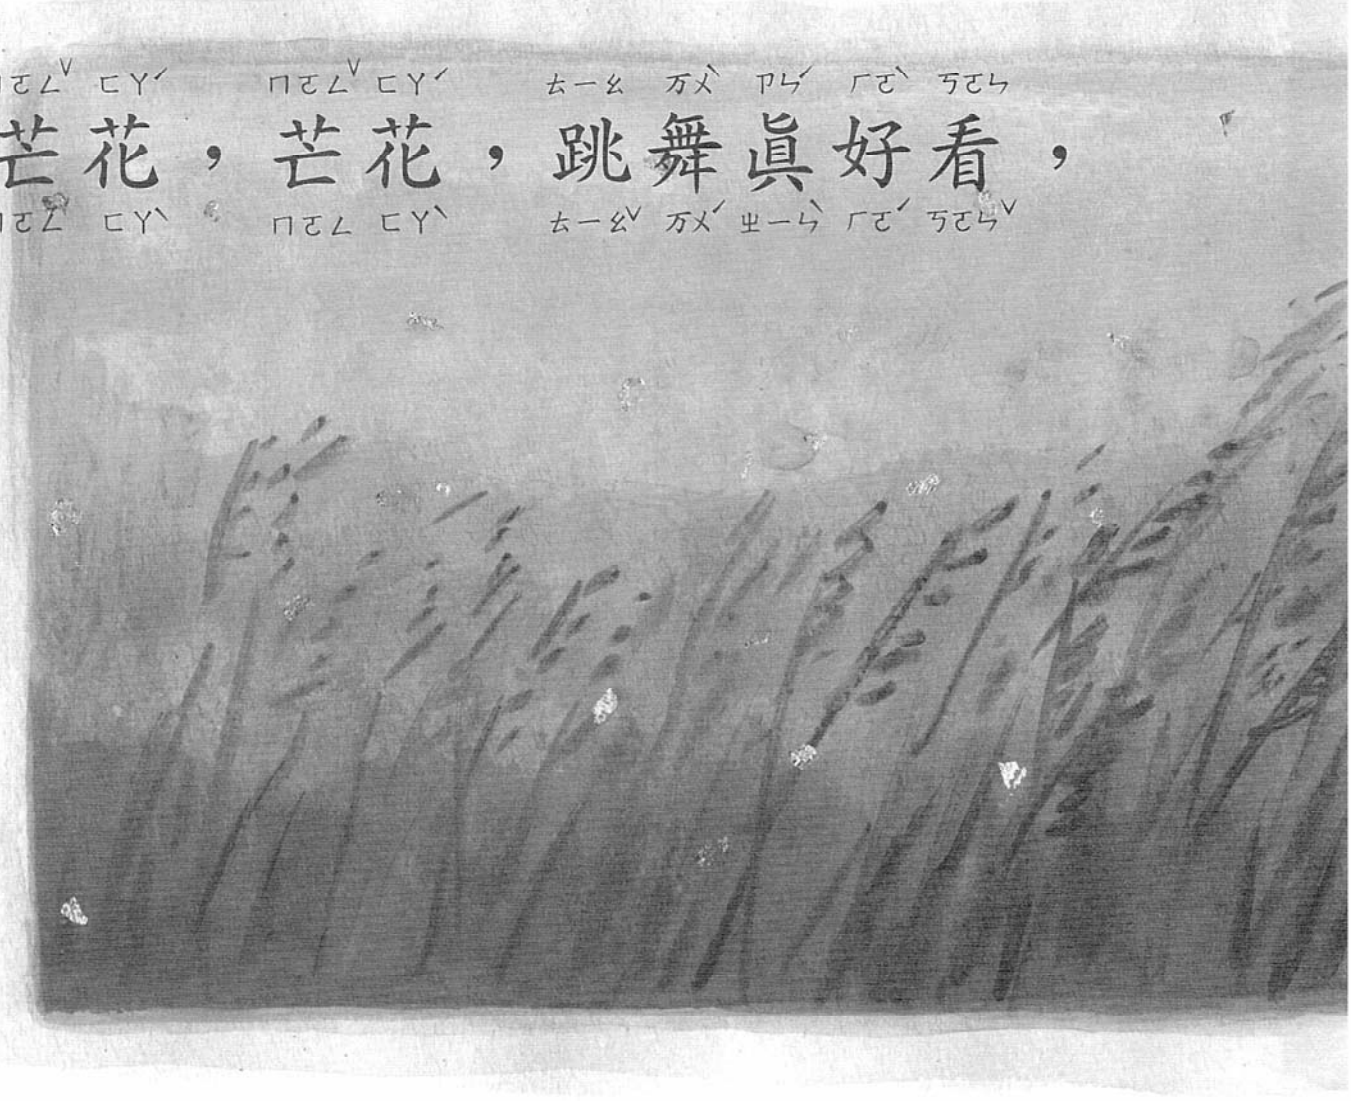 ㄇㄛㄥˇ ㄈㄚˊ ㄇㄛㄥˇ ㄈㄚˊ ㄊㄧㄠ ㄪㄨˋ ㄗㄣˊ ㄏㄛˋ ㄎㄛㄣ
芒花，芒花，跳舞眞好看，
ㄇㄛㄥ ㄈㄚˋ ㄇㄛㄥ ㄈㄚˋ ㄊㄧㄠˇ ㄪㄨˊ ㄓㄧㄣˋ ㄏㄛˊ ㄎㄛㄣˇ